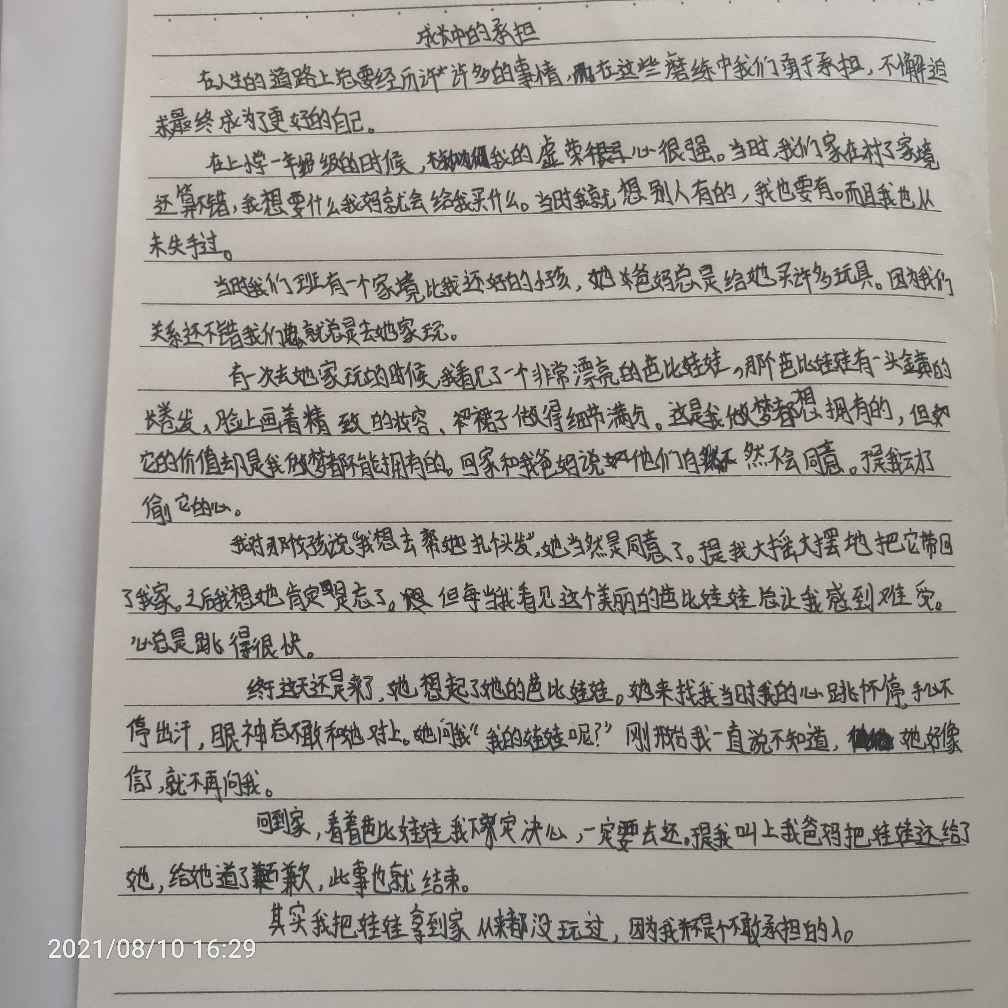 成长中的承担
在人生的道路上总要经历许许多的事情,而在这些磨练中我们勇于承担,不懈追
求最终成为了更好的自己。
在上小学一年级的时候,我的虚荣心很强。当时,我们家在村子家境
还算不错,我想要什么我妈就会给我买什么。当时我就想别人有的,我也要有。而且我也从
未失手过。
当时我们班有一个家境比我还好的小孩,她爸妈总是给她买许多玩具。因为我们
关系还不错我们就总是去她家玩。
有一次去她家玩的时候,我看见了一个非常漂亮的芭比娃娃,那个芭比娃娃有一头金黄的
长卷发,脸上画着精致的妆容、裙子做得细节满分。这是我做梦都想拥有的,但
它的价值却是我做梦都不能拥有的。回家和我爸妈说他们自然不会同意。于是我动了
偷它的心。
我对那个女孩说"我想去帮她扎个头发",她当然是同意了。于是我大摇大摆地把它带回
了我家。之后我想她肯定是忘了。但每当我看见这个美丽的芭比娃娃总让我感到难受。
心总是跳得很快。
终于这天还是来了,她想起了她的芭比娃娃。她来找我当时我的心跳不停,手心不
停出汗,眼神总不敢和她对上。她问我"我的娃娃呢?"刚开始我一直说不知道,她好像
信了,就不再问我。
回到家,看着芭比娃娃,我下定决心,一定要去还。于是我叫上我爸妈把娃娃还给了
她,给她道了歉,此事也就结束。
其实我把娃娃拿到家从来都没玩过,因为我不是个不敢承担的人。
2021/08/10 16:29